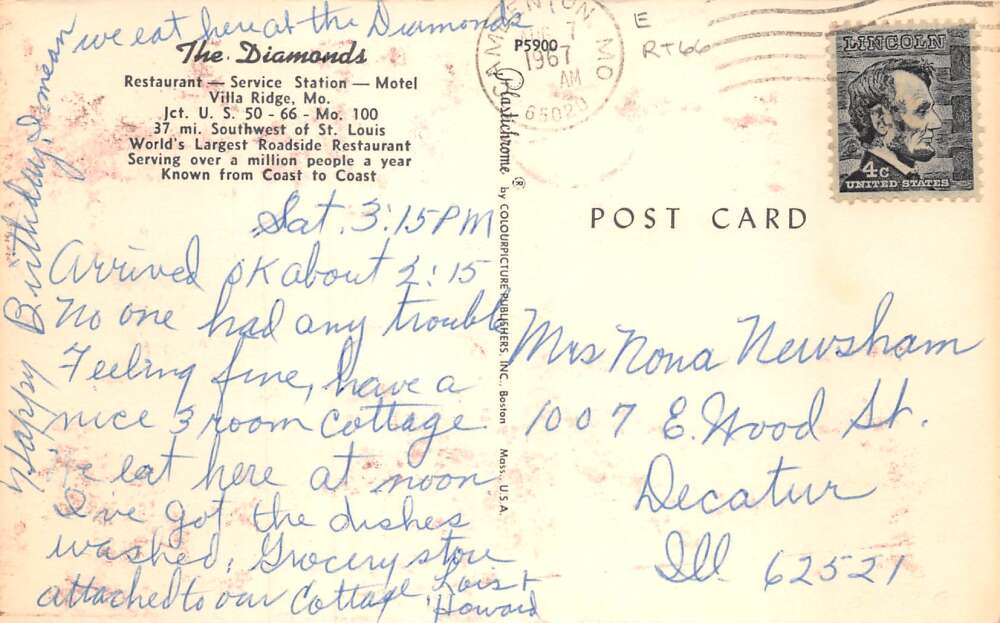 we eat here at the Diamonds
Happy Birthday, I mean
The Diamonds
Restaurant — Service Station — Motel
Villa Ridge, Mo.
Jct. U. S. 50 - 66 - Mo. 100
37 mi. Southwest of St. Louis
World's Largest Roadside Restaurant
Serving over a million people a year
Known from Coast to Coast
Sat. 3:15 PM
Arrived OK about 2:15
No one had any trouble
Feeling fine, have a
nice 3 room cottage.
We eat here at noon
I've got the dishes
washed. Grocery store
attached to our Cottage
Lois +
Howard
P5900
Plastichrome ® by COLOURPICTURE PUBLISHERS, INC., Boston Mass., U.S.A.
1967
AM
MO
65020
E
RT66
LINCOLN
4c
UNITED STATES
POST CARD
Mrs Nona Newsham
1007 E. Wood St.
Decatur
Ill. 62521